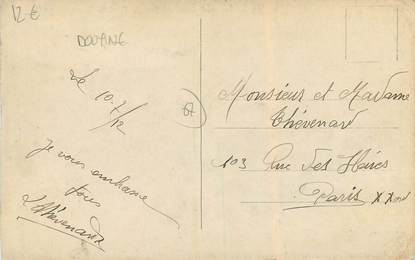 12€
DOUANE
Le 10.7/12
Je vous embrasse
tous
L Thévenard
67
Monsieur et Madame
Thévenard
103 Rue des Haies
Paris XXème